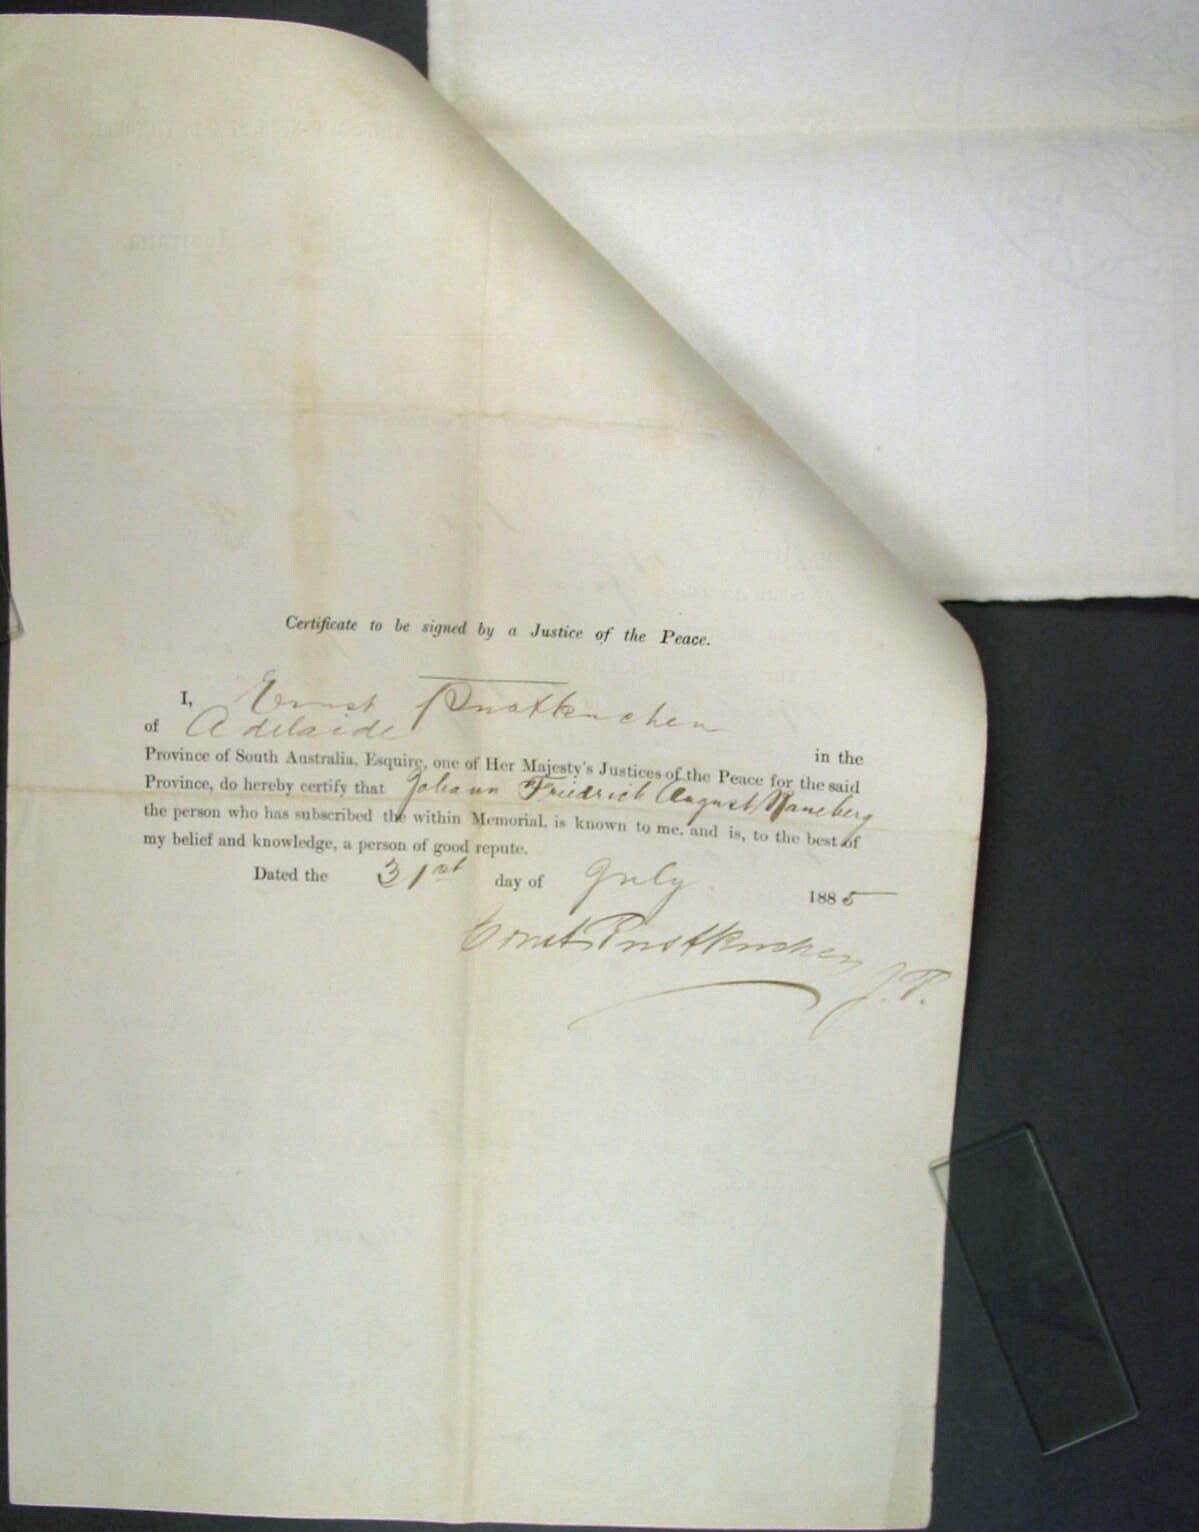 Certificate to be signed by a Justice of the Peace.
I, Ernst Pustkuchen
of Adelaide in the
Province of South Australia, Esquire, one of Her Majesty's Justices of the Peace for the said
Province, do hereby certify that Johann Friedrich August Naneberg
the person who has subscribed the within Memorial, is known to me, and is, to the best of
my belief and knowledge, a person of good repute.
Dated the 31st day of July 1885
Ernst Pustkuchen J.P.